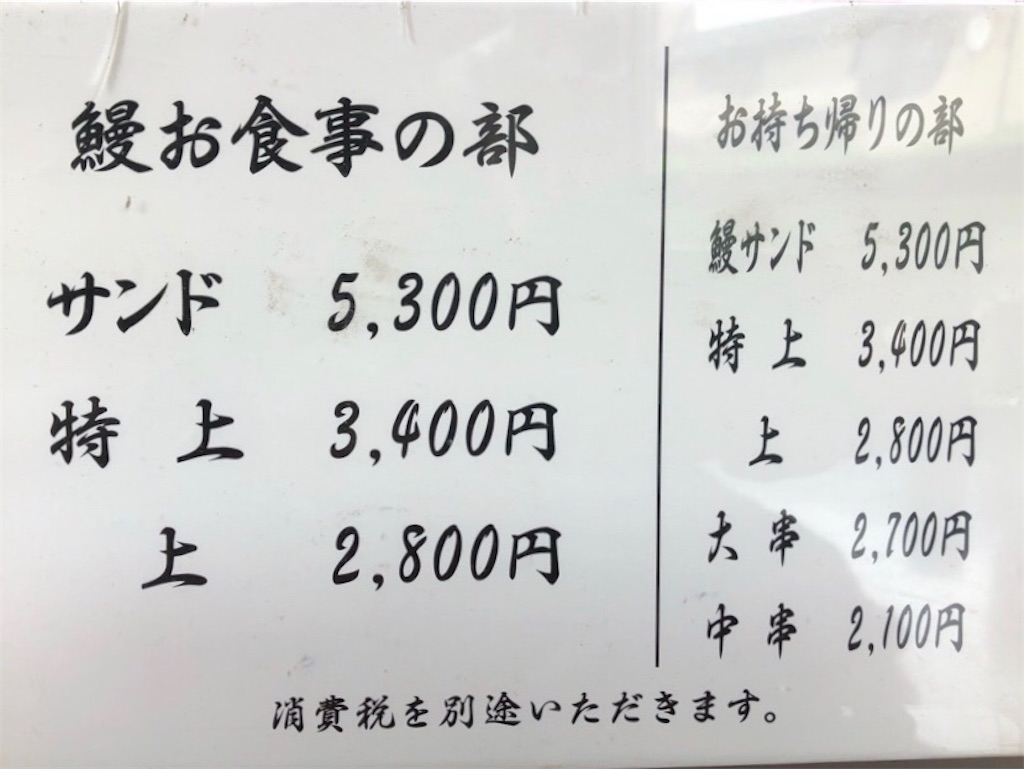 鰻お食事の部
サンド 5,300円
特上 3,400円
上 2,800円
お持ち帰りの部
鰻サンド 5,300円
特上 3,400円
上 2,800円
大串 2,700円
中串 2,100円
消費税を別途いただきます。